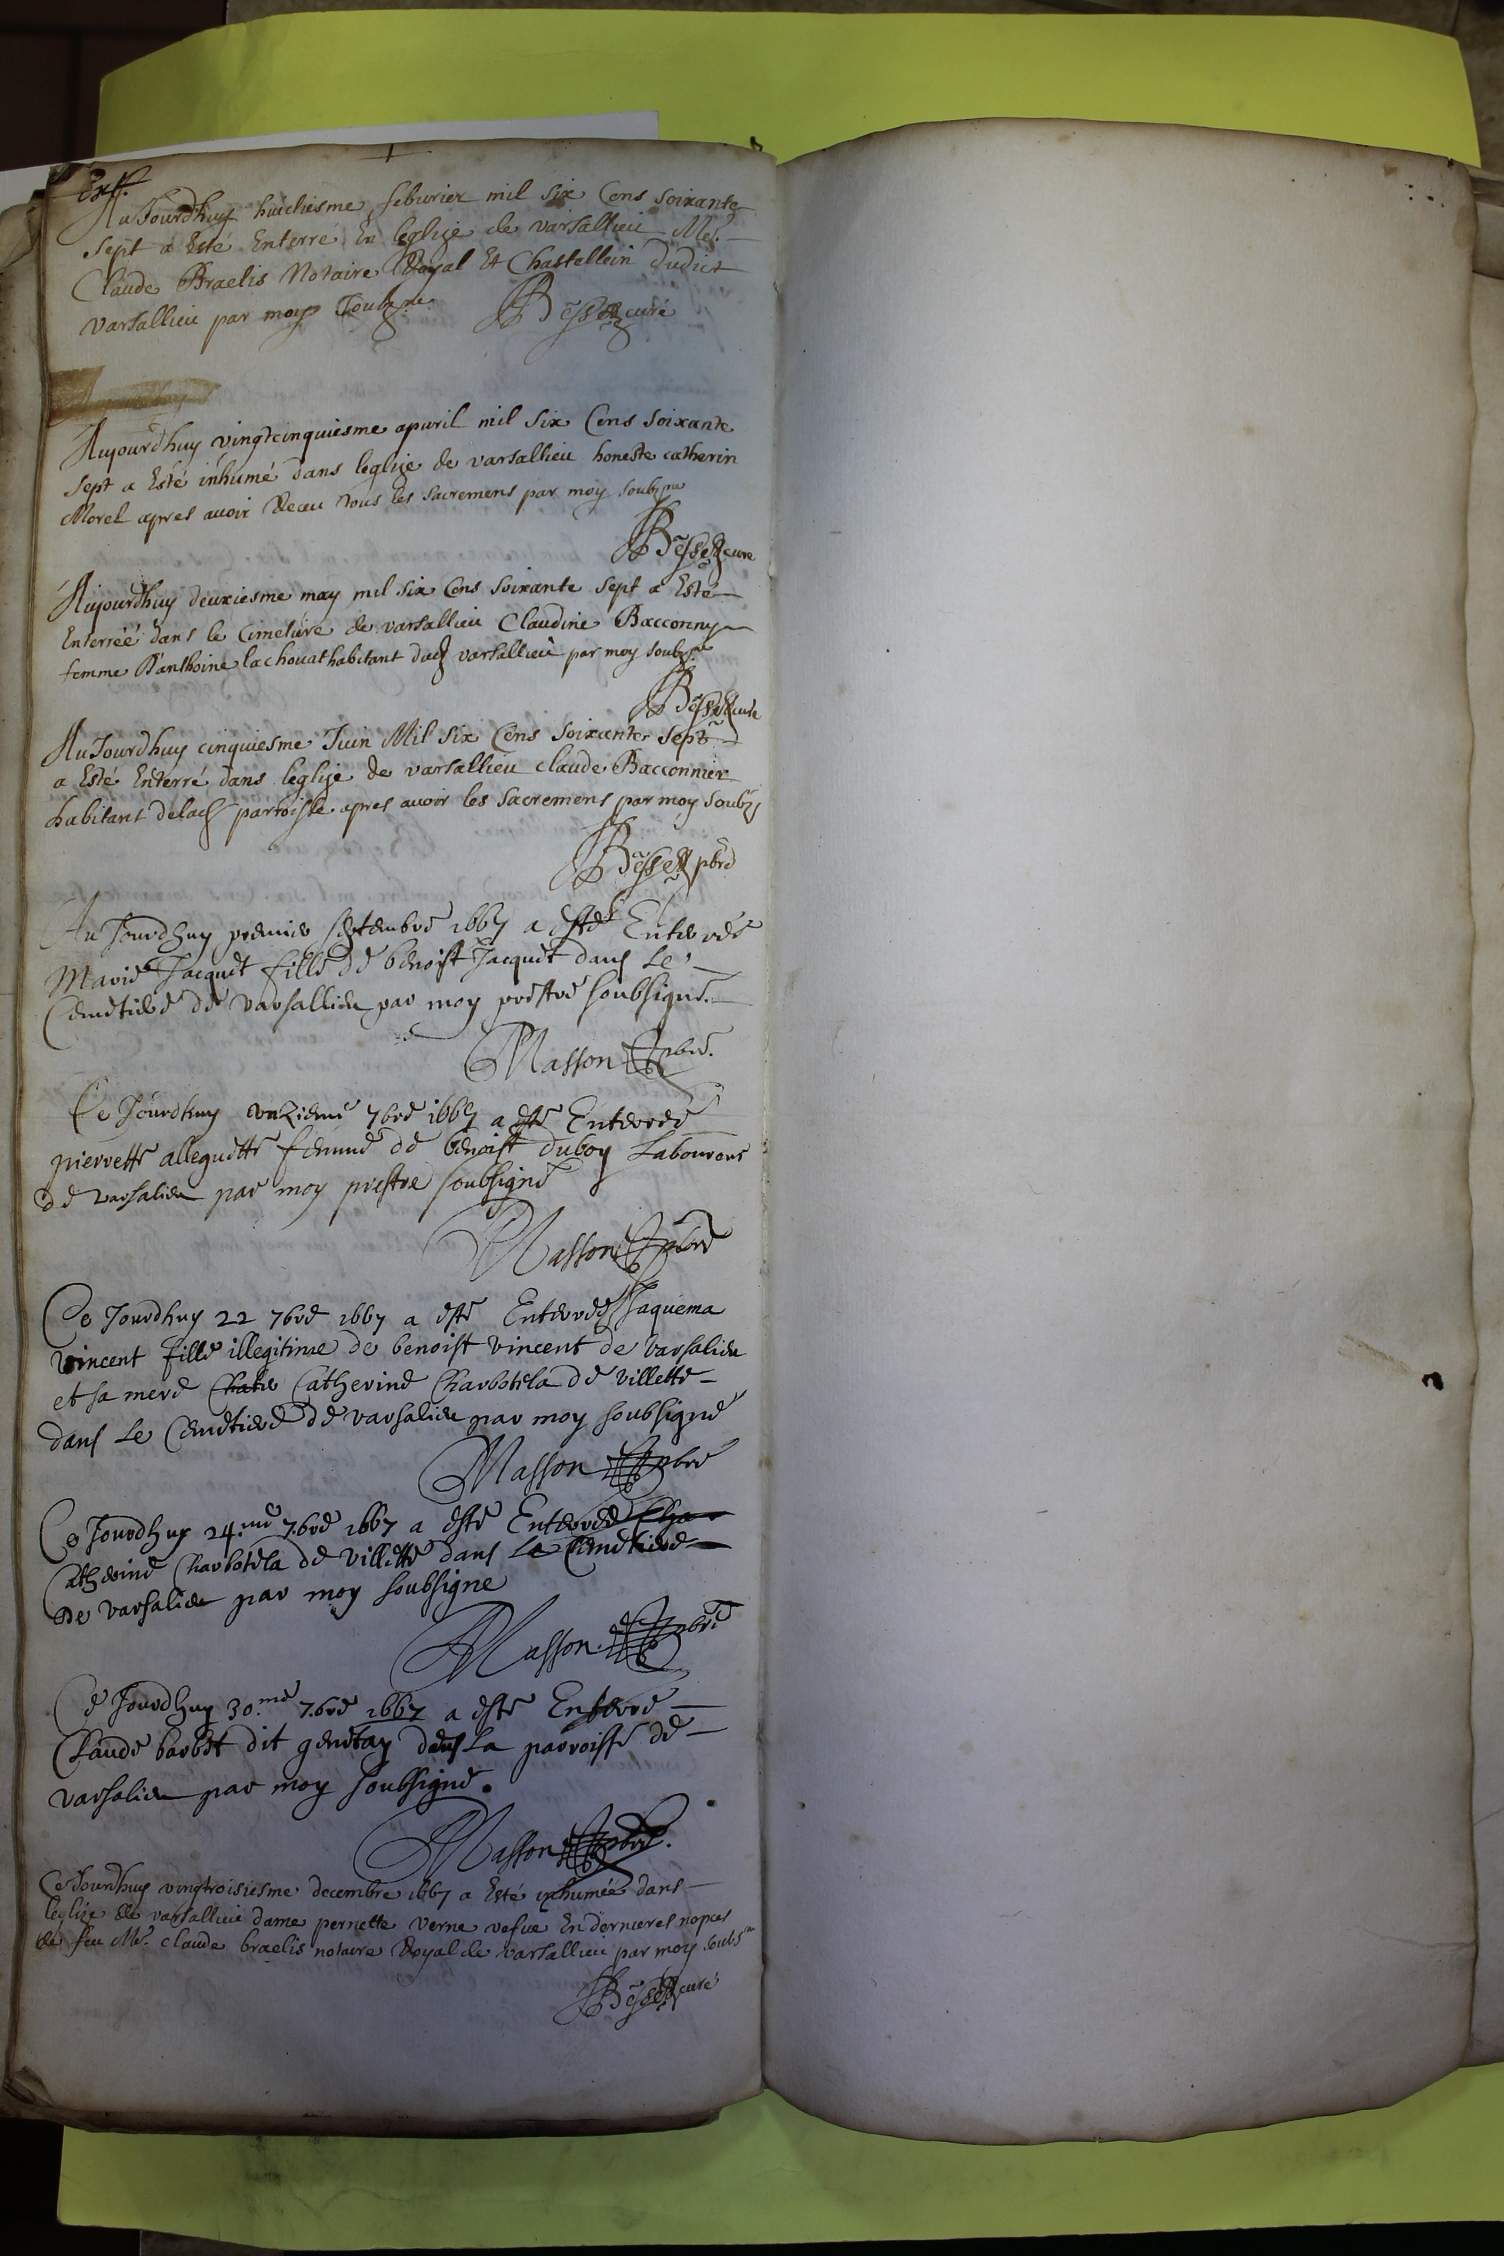 Ext.
AuJourdhuy huictiesme feburier mil six Cens soixante
sept a Esté Enterré En leglize de varsallieu Me.
Claude Braelis Notaire Royal Et Chastellein dudict
varsallieu par moy soubzne.
Besset curé
Aujourdhuy vingtcinquiesme apuril mil six Cens soixante
sept a Esté inhumé dans leglize de varsallieu honeste catherin
Morel apres auoir Receu tous les sacremens par moy soubzne
Besset cure
Aujourdhuy deuxiesme may mil six Cens soixante sept a Esté
Enterréé dans le Cimetiere de varsallieu Claudine Bacconny
femme D'anthoine lachouat habitant dud varsallieu par moy soubzne
Besset cure
AuJourdhuy cinquiesme Juin Mil six Cens soixante sept
a Esté Enterré dans leglize de varsallieu claude Bacconnier
habitant delad parroisse apres auoir les sacremens par moy soubz
Besset pbre
AuJourdhuy premier septembre 1667 a esté Enterrée
Marie Jacquet fille de benoist Jacquet dans Le
Cemetiere de varsallieu par moy prestre soubsigne.
Masson pbre.
Ce Jourdhuy unzieme 7bre 1667 a este Enterrée
pierrette alleguette femme de benoist duboy Laboureur
de varsalieu par moy prestre soubsigné
Masson pbre
Ce Jourdhuy 22 7bre 1667 a este Enterree Jaquema
vincent fille illegitime de benoist vincent de varsalieu
et sa mere Chater Catherine Charbotela de villette
dans Le Cemetiere de varsalieu par moy soubsigne
Masson pbre
Ce Jourdhuy 24.me 7bre 1667 a este Enterree Cha
Catherine Charbotela de villette dans Le Cemetiere
De varsalieu par moy soubsigne
Masson pbre
Ce Jourdhuy 30.me 7.bre 1667 a este Enterre
Claude barbet dit genetay dans La parroisse de
varsalieu par moy soubsigne.
Masson pbre.
Ce Jourdhuy vingtroisiesme decembre 1667 a Esté inhumée dans
leglize de varsallieu dame pernette verne vefue En dernieres nopces
de feu Me. claude braelis notaire Royal de varsallieu par moy soubsne
Besset curé